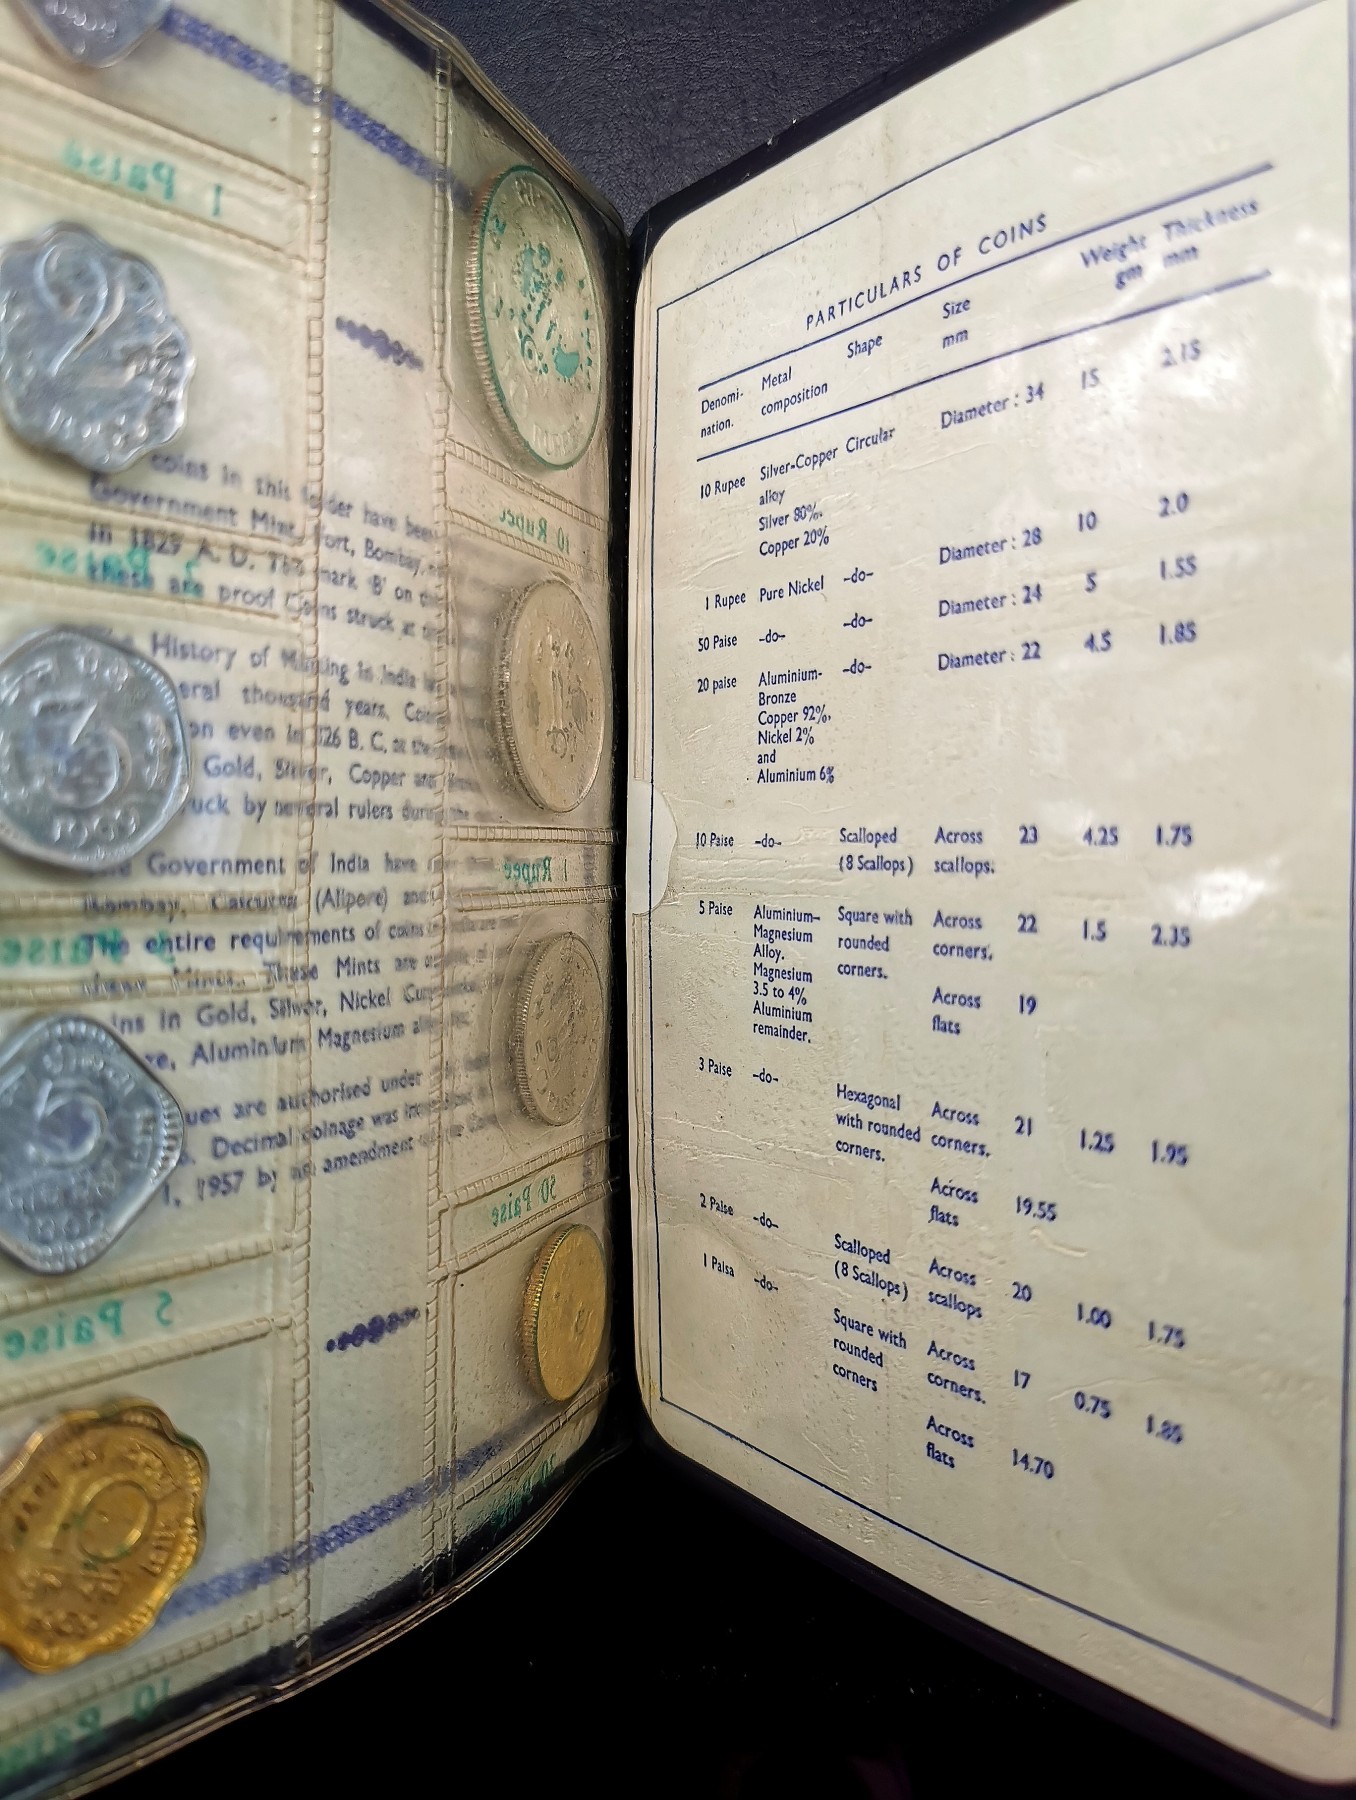 1 Paisa
coins in this folder have been
Government Mint, Fort, Bombay,
in 1829 A. D. The mark 'B' on
these are proof Coins struck at
History of Minting in India
thousand years. Coins
on even in 326 B. C. at the
Gold, Silver, Copper and
struck by several rulers during the
The Government of India have
Bombay, Calcutta (Alipore) and
The entire requirements of coins
Mints. These Mints are
in Gold, Silver, Nickel
Aluminium Magnesium
are authorised under
Decimal coinage was
1, 1957 by an amendment
5 Paise
10 Paise
10 Rupee
1 Rupee
50 Paise
PARTICULARS OF COINS
Denomi-nation. Metal composition Shape Size mm Weight gm Thickness mm
10 Rupee Silver-Copper Circular Diameter : 34 15 2.15
alloy
Silver 80%.
Copper 20%
1 Rupee Pure Nickel -do- Diameter : 28 10 2.0
50 Paise -do- -do- Diameter : 24 5 1.55
20 paise Aluminium- -do- Diameter : 22 4.5 1.85
Bronze
Copper 92%.
Nickel 2%
and
Aluminium 6%
10 Paise -do- Scalloped Across 23 4.25 1.75
(8 Scallops) scallops.
5 Paise Aluminium- Square with Across 22 1.5 2.35
Magnesium rounded corners.
Alloy. corners.
Magnesium Across 19
3.5 to 4% flats
Aluminium
remainder.
3 Paise -do- Hexagonal Across 21 1.25 1.95
with rounded corners.
corners.
Across 19.55
flats
2 Paise -do- Scalloped Across 20 1.00 1.75
(8 Scallops) scallops
1 Paisa -do- Square with Across 17 0.75 1.85
rounded corners.
corners
Across 14.70
flats